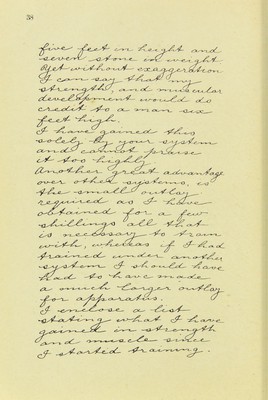 38
five feet in height and
seven stone in weight
Yet without exaggeration
I can say that my
strength, and muscular
development would do
credit to a man six
feet high.
I have gained this
solely by your system
and cannot praise
it too highly.
Another great advantage
over other systems, is
the small outlay
required as I have
obtained for a few
shillings all that
is necessary to train
with, whereas if I had
trained under another
system I should have
had to have made
a much larger outlay
for apparatus.
I enclose a list
stating what I have
gained in strength
and muscle since
I started training.